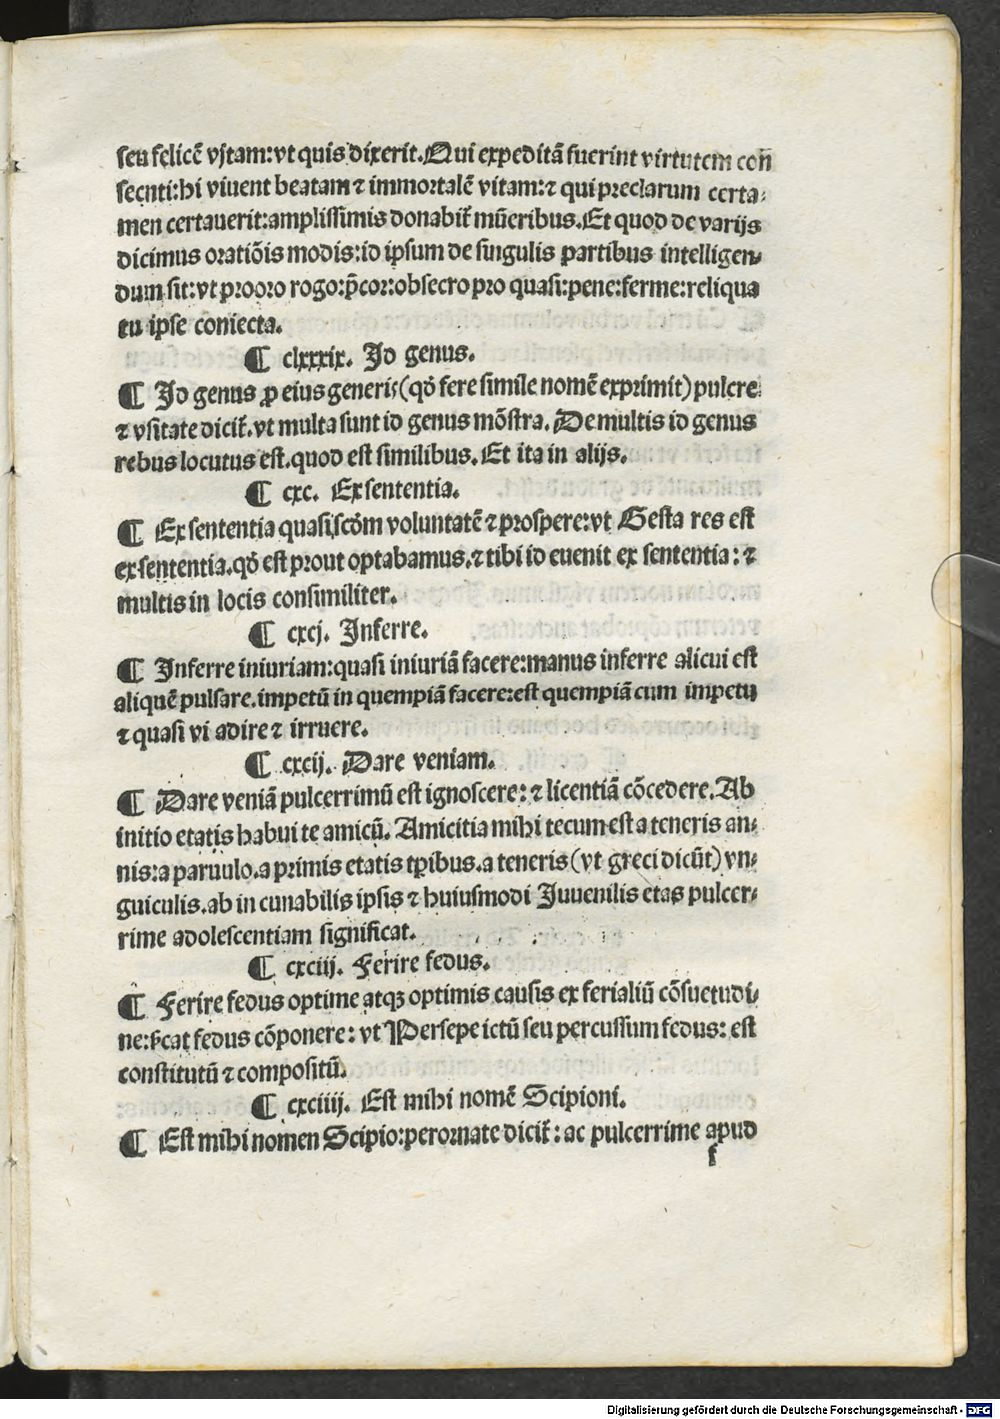 seu felicē vitam:vt quis dixerit.Qui expeditā fuerint virtutem con
secuti:hi viuent beatam ⁊ immortalē vitam:⁊ qui preclarum certa-
men certauerit:amplissimis donabit̃ mūeribus.Et quod de varijs
dicimus oratiōis modis:id ipsum de singulis partibus intelligen-
dum sit:vt pro oro rogo:p̄cor:obsecro pro quasi:pene:ferme:reliqua
tu ipse coniecta.
¶ clxxxix. Id genus.
¶ Id genus ꝓ eius generis(qd̄ fere simile nomē exprimit)pulcre
⁊ vsitate dicit̃.vt multa sunt id genus mōstra.De multis id genus
rebus locutus est.quod est similibus.Et ita in alijs.
¶ cxc. Ex sententia.
¶ Ex sententia quasi scd̄m voluntatē ⁊ prospere:vt Gesta res est
ex sententia.qd̄ est prout optabamus.⁊ tibi id euenit ex sententia:⁊
multis in locis consimiliter.
¶ cxcj. Inferre.
¶ Inferre iniuriam:quasi iniuriā facere:manus inferre alicui est
aliquē pulsare.impetū in quempiā facere:est quempiā cum impetu
⁊ quasi vi adire ⁊ irruere.
¶ cxcij. Dare veniam.
¶ Dare veniā pulcerrimū est ignoscere:⁊ licentiā cōcedere.Ab
initio etatis habui te amicū. Amicitia mihi tecum est a teneris an-
nis:a paruulo.a primis etatis tp̄ibus.a teneris(vt greci dicūt)vn-
guiculis.ab in cunabilis ipsis ⁊ huiusmodi Iuuenilis etas pulcer-
rime adolescentiam significat.
¶ cxciij. Ferire fedus.
¶ Ferire fedus optime atqꝫ optimis causis ex ferialiū cōsuetudi-
ne:fꝰcat fedus cōponere: vt Persepe ictū seu percussum fedus: est
constitutū ⁊ compositū.
¶ cxciiij. Est mihi nomē Scipioni.
¶ Est mihi nomen Scipio:perornate dicit̃: ac pulcerrime apud
f
Digitalisierung gefördert durch die Deutsche Forschungsgemeinschaft - DFG